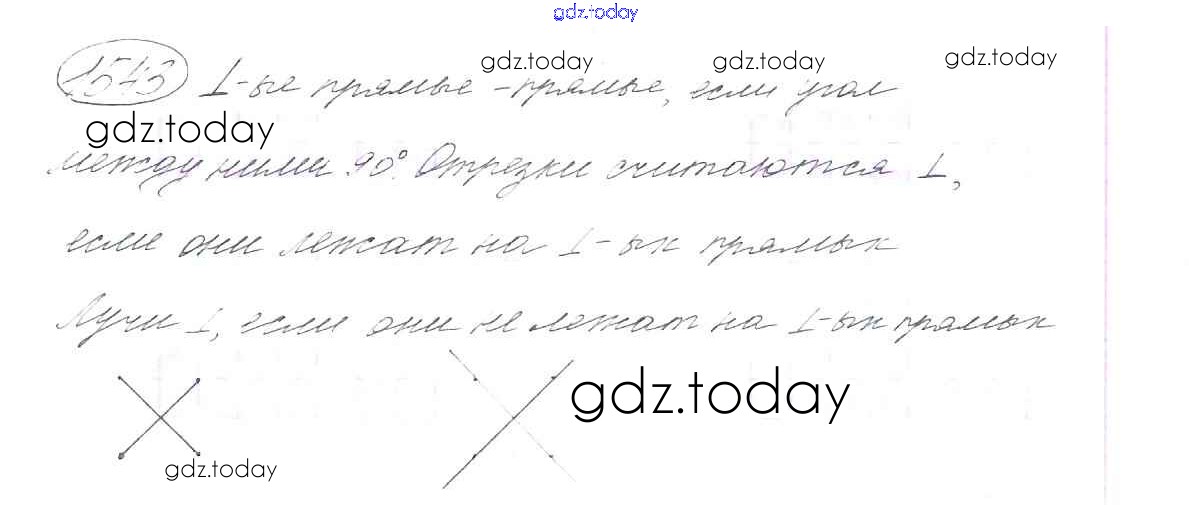 gdz.today
1543 ⊥-ые прямые – прямые, если угол
gdz.today gdz.today gdz.today
gdz.today
между ними 90°. Отрезки считаются ⊥,
если они лежат на ⊥-ых прямых
Лучи ⊥, если они не лежат на ⊥-ых прямых
gdz.today
gdz.today